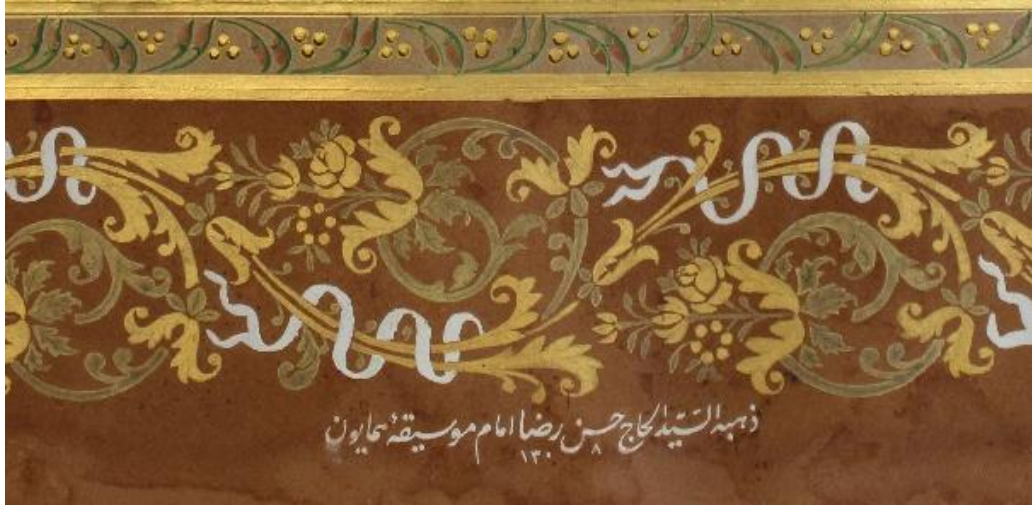 ذهبه السّيّد الحاج حسن رضا امام موسيقۀ همايون
١٣٠٨